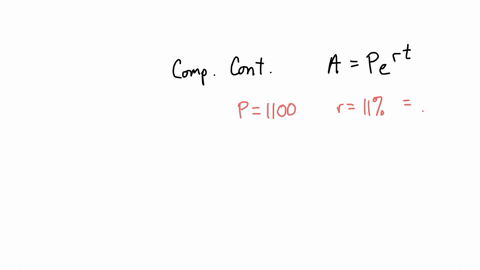 Comp. Cont. A = Pe^{rt}
P = 1100 r = 11% = .